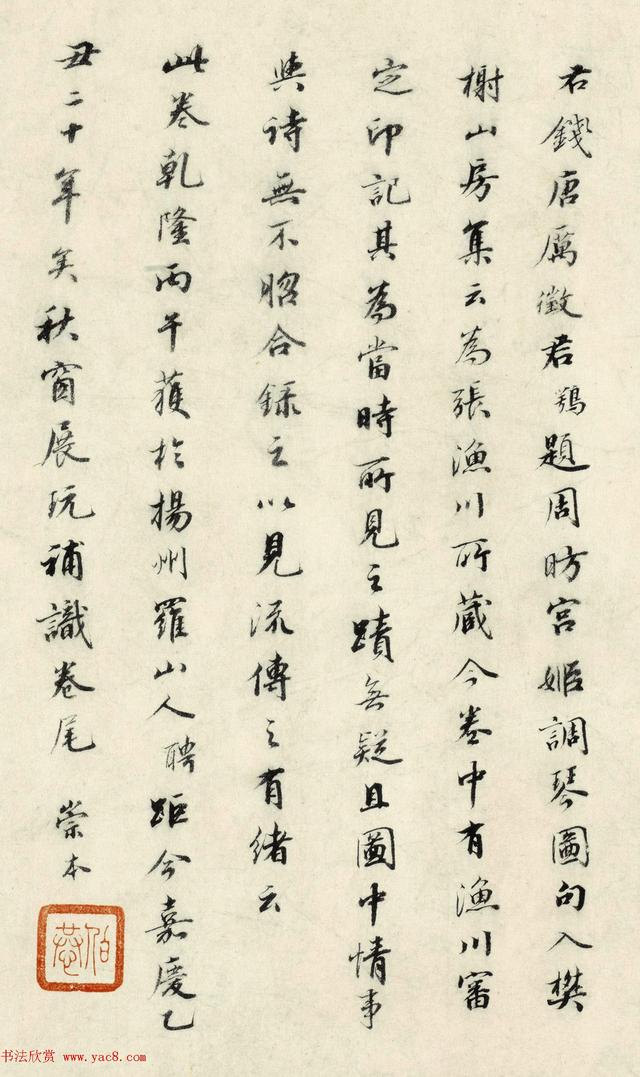 右錢唐厲徵君鶚題周昉宮姬調琴圖句入樊
榭山房集云為張漁川所蔵今卷中有漁川審
定印記其為當時所見之蹟無疑且圖中情事
與詩無不昭合錄之以見流傳之有緒云
此卷乾隆丙午獲於揚州羅山人聘距今嘉慶乙
丑二十年矣秋窗展玩補識卷尾 崇本
书法欣赏 www.yac8.com